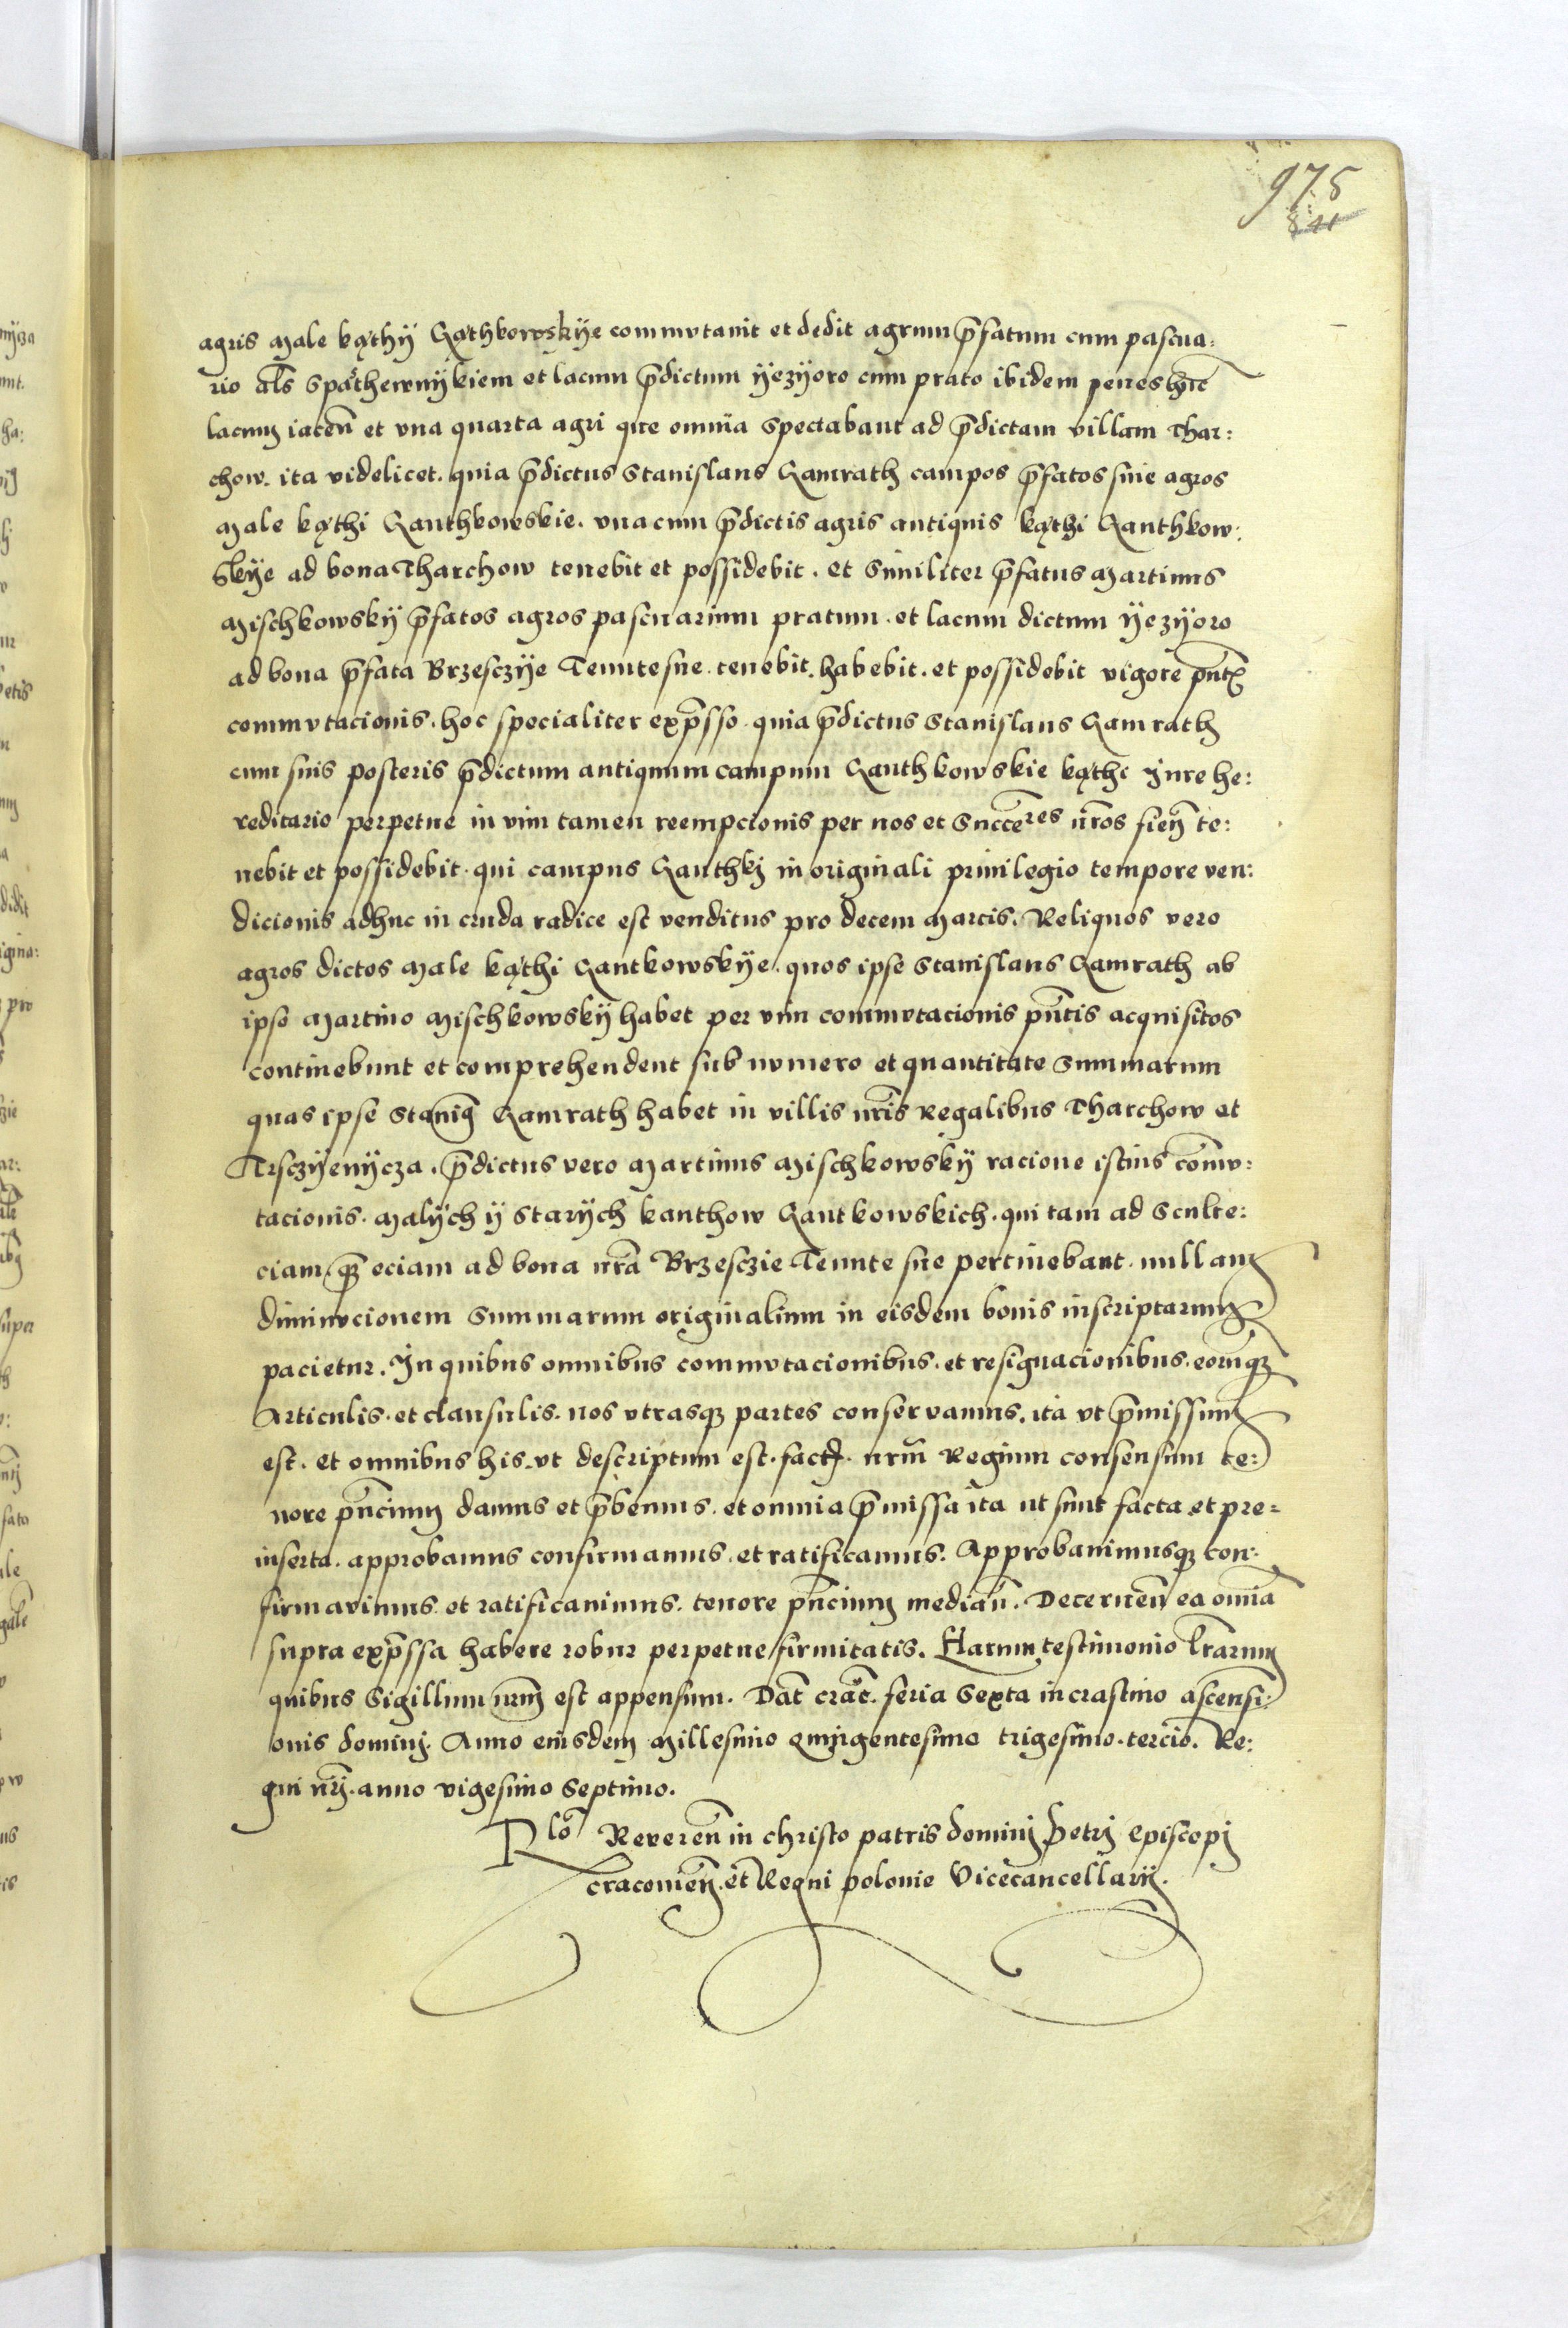 975
841
agris Male kąthÿ Gąthkowskÿe commvtauit et dedit agrum p̄fatum cum pascua:
rio al̄s Spąthewnÿkiem et lacum p̄dictum ÿezÿoro cum prato ibidem penes hūc
lacum iaceñ et vna quarta agri que omnia spectabant ad p̄dictam villam Thar:
chow. ita videlicet. quia p̄dictus Stanislaus Gamrath campos p̄fatos siue agros
Male kąthi Ganthkowskie. vnacum p̄dictis agris antiquis kąthi Ganthkow:
skÿe ad bona Tharchow tenebit et possidebit. et Similiter p̄fatus Martinus
Mischkowskÿ p̄fatos agros pascuarium pratum. et lacum dictum ÿezÿoro
ad bona p̄fata Brzesczÿe Tenute sue. tenebit. habebit. et possidebit vigore pn̄t
commvtacionis. hoc specialiter exp̄sso. quia p̄dictus Stanislaus Gamrath
cum suis posteris p̄dictum antiquum campum Ganthkowskie kąthi Jure he:
reditario perpetue in vim tamen reempcionis per nos et Succēres nr̄os fieñ te:
nebit et possidebit. qui campus Ganthkj in originali priuilegio tempore ven:
dicionis adhuc in cruda radice est venditus pro decem Marcis. Reliquos vero
agros dictos Male kąthi Gantkowskÿe. quos ipse Stanislaus Gamrath ab
ipso Martino Mischkowskÿ habet per vim commvtacionis pn̄tis acquisitos
continebunt et comprehendent sub nvmero et quantitate Summarum
quas ipse Staniq Gamrath habet in villis nr̄is Regalibus Tharchow et
Trsczÿenÿcza. p̄dictus vero Martinus Mischkowskÿ racione istius com̄v:
tacionis. Malÿch ÿ Starÿch kanthow Gantkowskich. qui tam ad Sculte:
ciam. qȝ eciam ad bona nr̄a Brzesczie Tenute sue pertinebant. nullam
diminvcionem Summarum originalium in eisdem bonis inscriptarum
pacietur. Jn quibus omnibus commvtacionibus. et resignacionibus. eorumqȝ
Articulis. et clausulis. nos vtrasqȝ partes conservamus. ita vt p̄missum
est. et omnibus his. vt descriptum est. fact. nr̄m Regium consensum te:
nore pn̄cium damus et p̄bemus. et omnia p̄missa ita ut sunt facta et pre=
inserta. approbamus confirmamus. et ratificamus. Approbauimusqȝ con:
firmavimus. et ratificauimus. tenore pn̄cium mediañ. Decerneñ ea omnia
supra exp̄ssa habere robur perpetue firmitatis. Harum testimonio lr̄arum
quibus Sigillum nr̄m est appensum. Dat̄ crac̄. feria Sexta in crastino ascensi:
onis dominj. Anno eiusdem Millesimo quingentesimo trigesimo. tercio. Re:
gni nr̄j. anno vigesimo Septimo.
Rlō Revereñ in christo patris dominj Petrj Episcopj
cracovieñ. et Regni polonie Vicecancellarij.